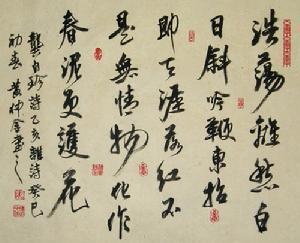 浩蕩離愁白
日斜吟鞭東指
即天涯落紅不
是無情物化作
春泥更護花
龔自珍詩己亥雜詩癸巳
初春黄仲金書之